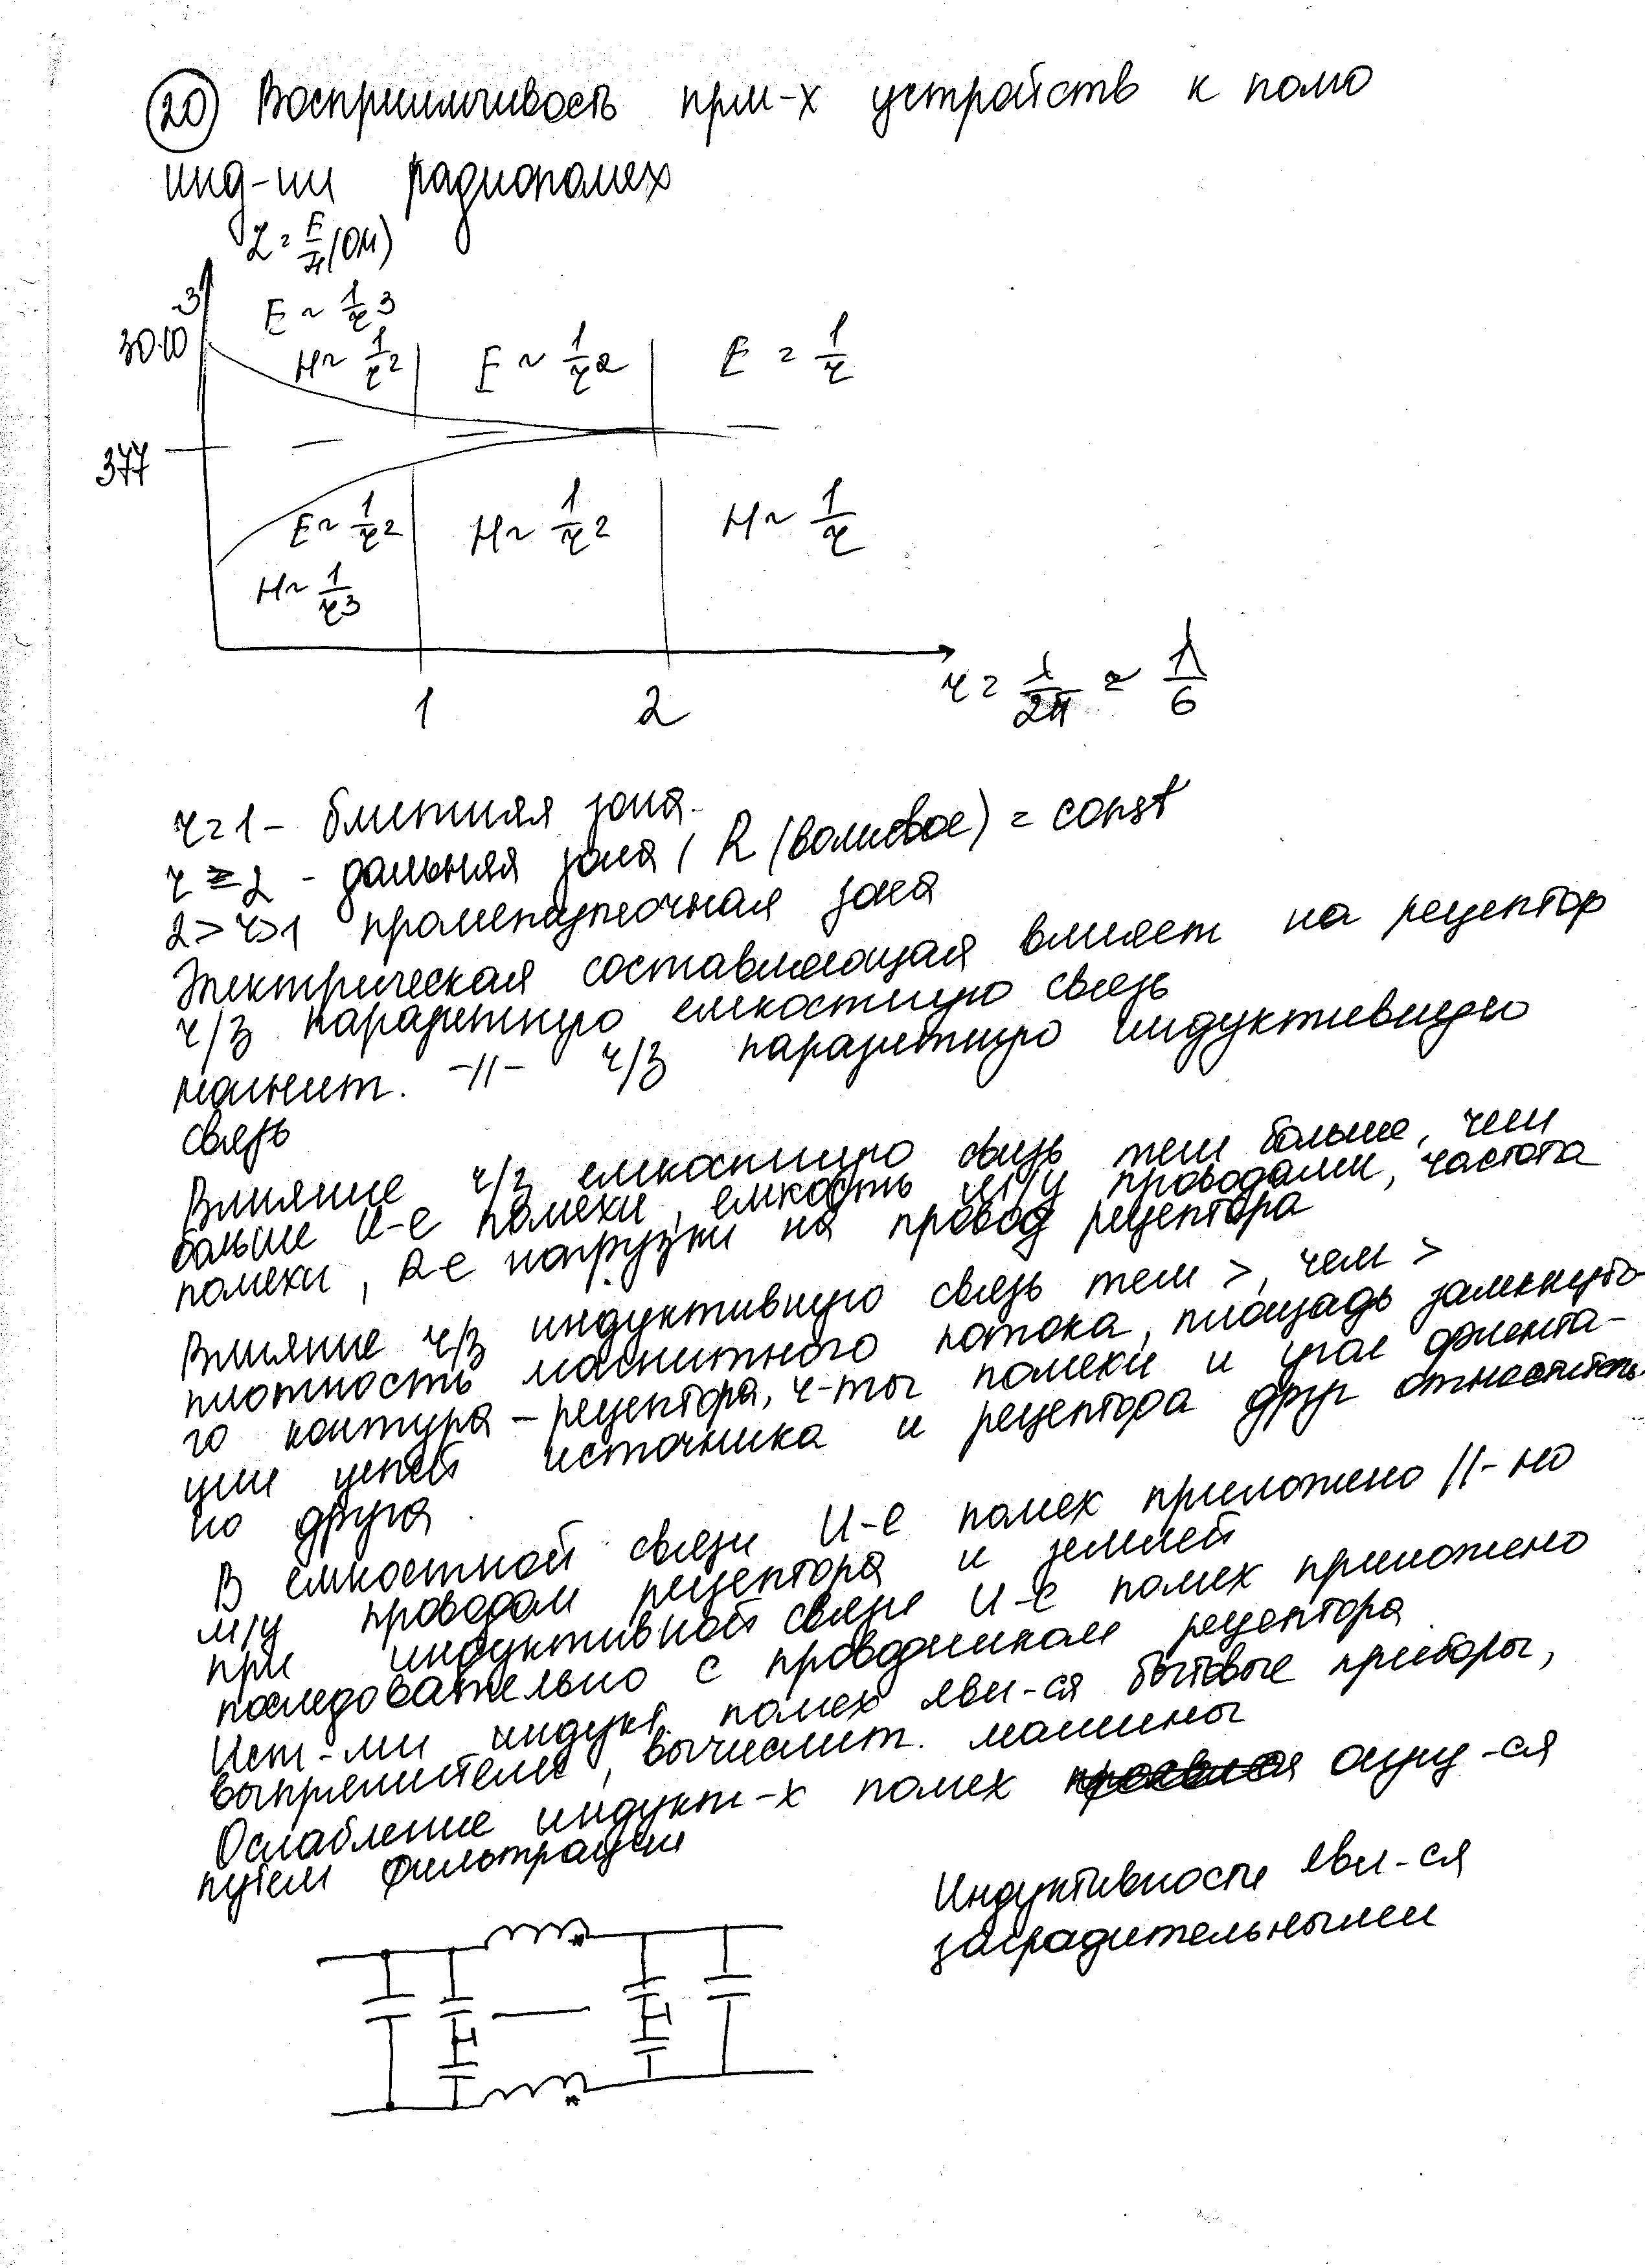 20 Восприимчивость прм-х устройств к полю
инд-ии радиопомех
Z = E/H (Ом)
30·10³
377
E ~ 1/r³
H ~ 1/r²
E ~ 1/r²
E = 1/r
E ~ 1/r²
H ~ 1/r³
H ~ 1/r²
H ~ 1/r
1
2
r = λ/2π ≈ λ/6
r=1 – ближняя зона.
r ≥ 2 - дальняя зона, R (волновое) = const
2>r>1 промежуточная зона
Электрическая составляющая влияет на рецептор
ч/з паразитную емкостную связь
магнит. -||- ч/з паразитную индуктивную
связь
Влияние ч/з емкостную связь тем больше, чем
больше U-е помехи, емкость м/у проводами, частота
помехи, R-е нагрузки на провод рецептора
Влияние ч/з индуктивную связь тем >, чем >
плотность магнитного потока, площадь замкнуто-
го контура – рецептора, ч-ты помехи и угол ориента-
ции цепей источника и рецептора друг относитель-
но друга.
В емкостной связи U-е помех приложено ||-но
м/у проводом рецептора и землей
при индуктивной связи U-е помех приложено
последовательно с проводником рецептора
Ист-ми индукт. помех явл-ся бытовые приборы,
выпрямители, вычислит. машины
Ослабление индукт-х помех осущ-ся
путем фильтрации
Индуктивности явл-ся
заградительными